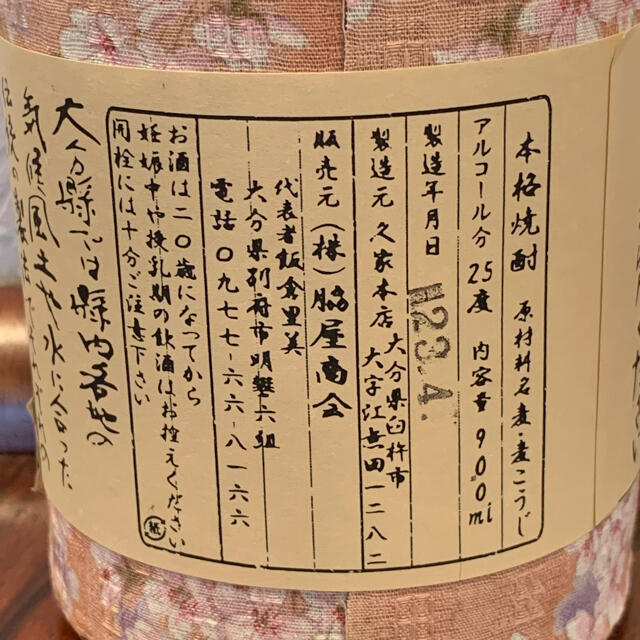 本格焼酎 原材料名麦・麦こうじ
アルコール分 25度 内容量 900ml
製造年月日 H23.4.
製造元 久家本店 大分県臼杵市
大字江無田一二八二
販売元 (株)脇屋商会
代表者飯倉里美
大分県別府市明礬六組
電話〇九七七-六六-八一六六
お酒は二〇歳になってから
妊娠中や授乳期の飲酒はお控えください
開栓には十分ご注意下さい
紙
大分県では県内各地の
気候風土や水に合った